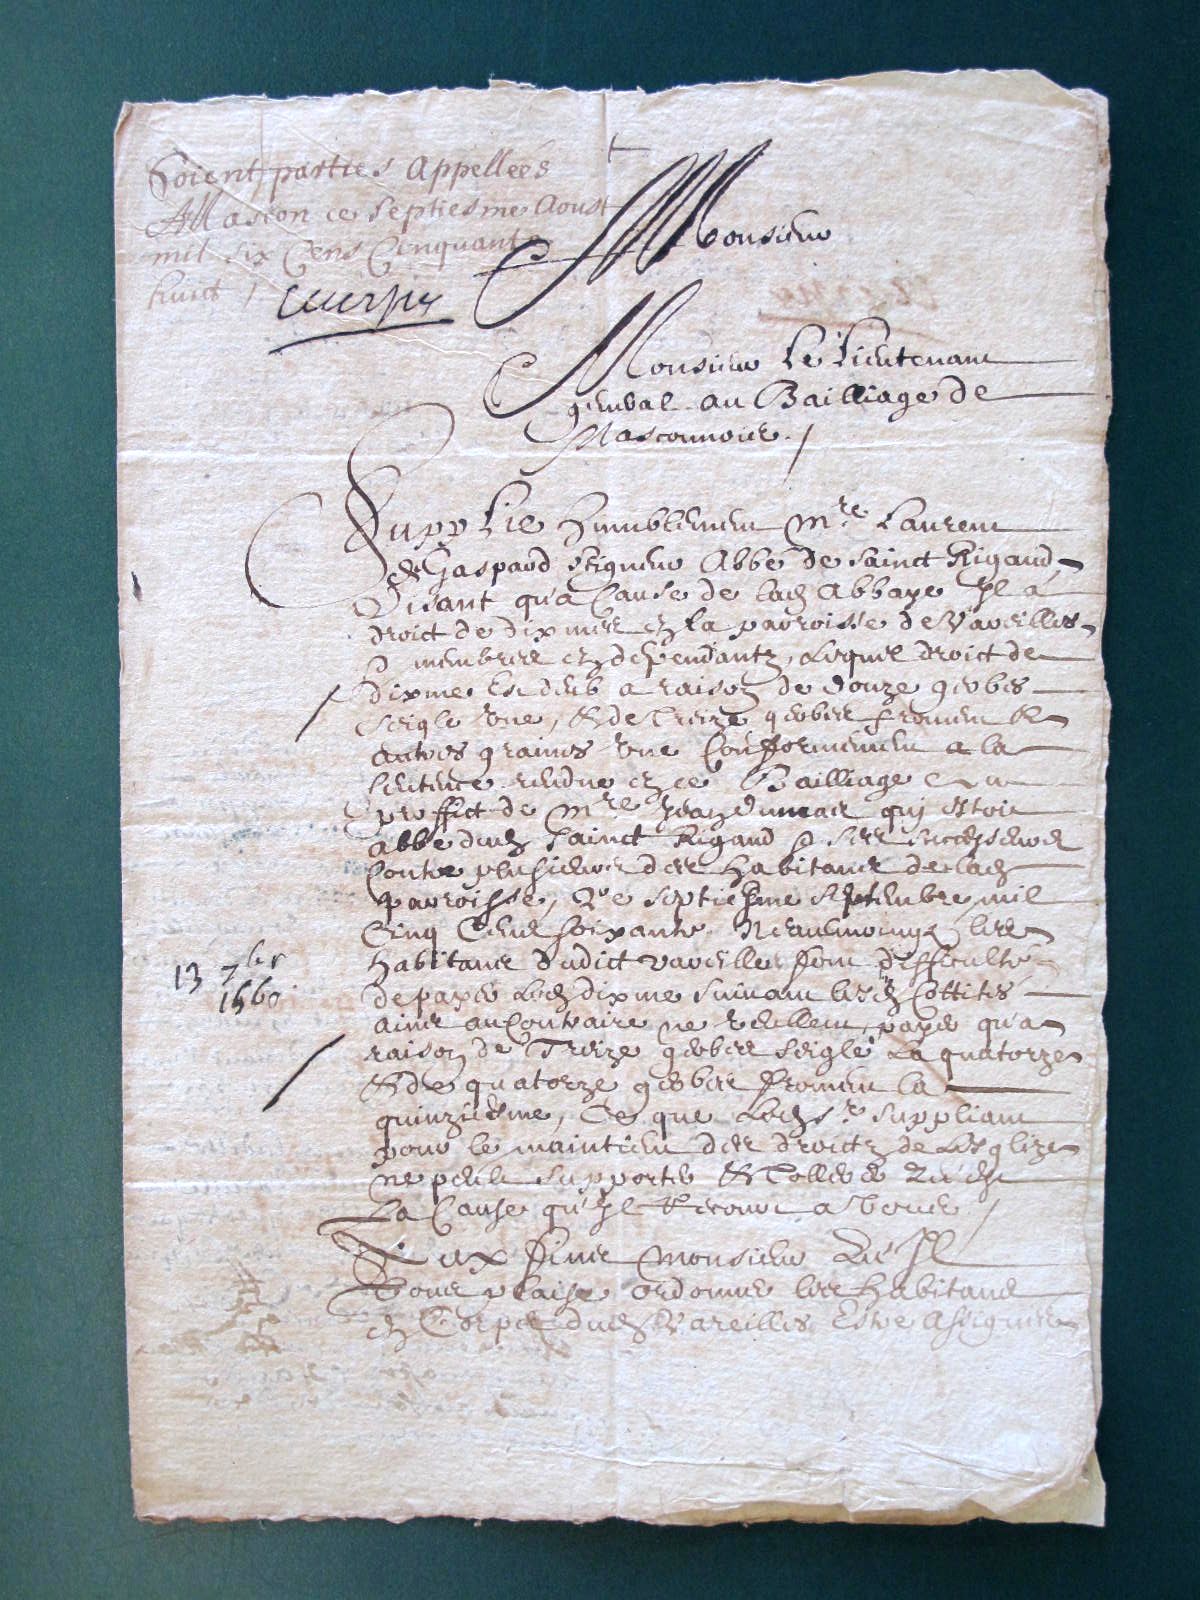 Soient parties Appelleés
A Mascon ce septiesme Aoust
mil six Cens Cinquante
huict /
Monsieur
Monsieur Le Lieutenant
general au Bailliage de
Masconnois /
Supplie humblement Mre Laurent
de Gaspard Seigneur Abbé de Sainct Rigaud
Disant qu'a Cause de lad Abbaye Il a
droict de dixmer en la parroisse de Vareilles
membres et dependantz, Lequel droict de
dixme Est deub a raison de douze gerbes
seigle une, & de Treize gerbes froment &
autres grains une Conformement a la
sentence rendue en ce Bailliage au
proffict de Mre Jean qui Estoit
abbé dud Sainct Rigaud & ses successeurs
Contre plusieurs des habitans de lad
parroisse, Le septiesme septembre mil
Cinq Cens soixante Neanmoings les
habitans dudict Vareilles font difficulté
de payer Led dixme suivant lesd Cottites
ains au Contraire ne veullent payer qu'a
raison de Treize gerbes seigle La quatorze
& de quatorze gerbes froment la
quinziesme, Ce que Led Sr suppliant
pour le maintien des droictz de L'Esglize
ne peult supporter & Tollerer Qu'est
La Cause qu'Il Recourt a Vous /
Aux fins Monsieur Qu'Il
Vous plaise ordonner les habitans
en Corps dud Vareilles Estre Assignés
13 7bre
1560